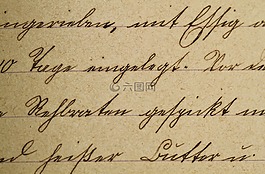 ingerieben, mit Essig
10 Tage eingelegt. Vor
Rehbraten gespickt
heißer Butter u.
六图网